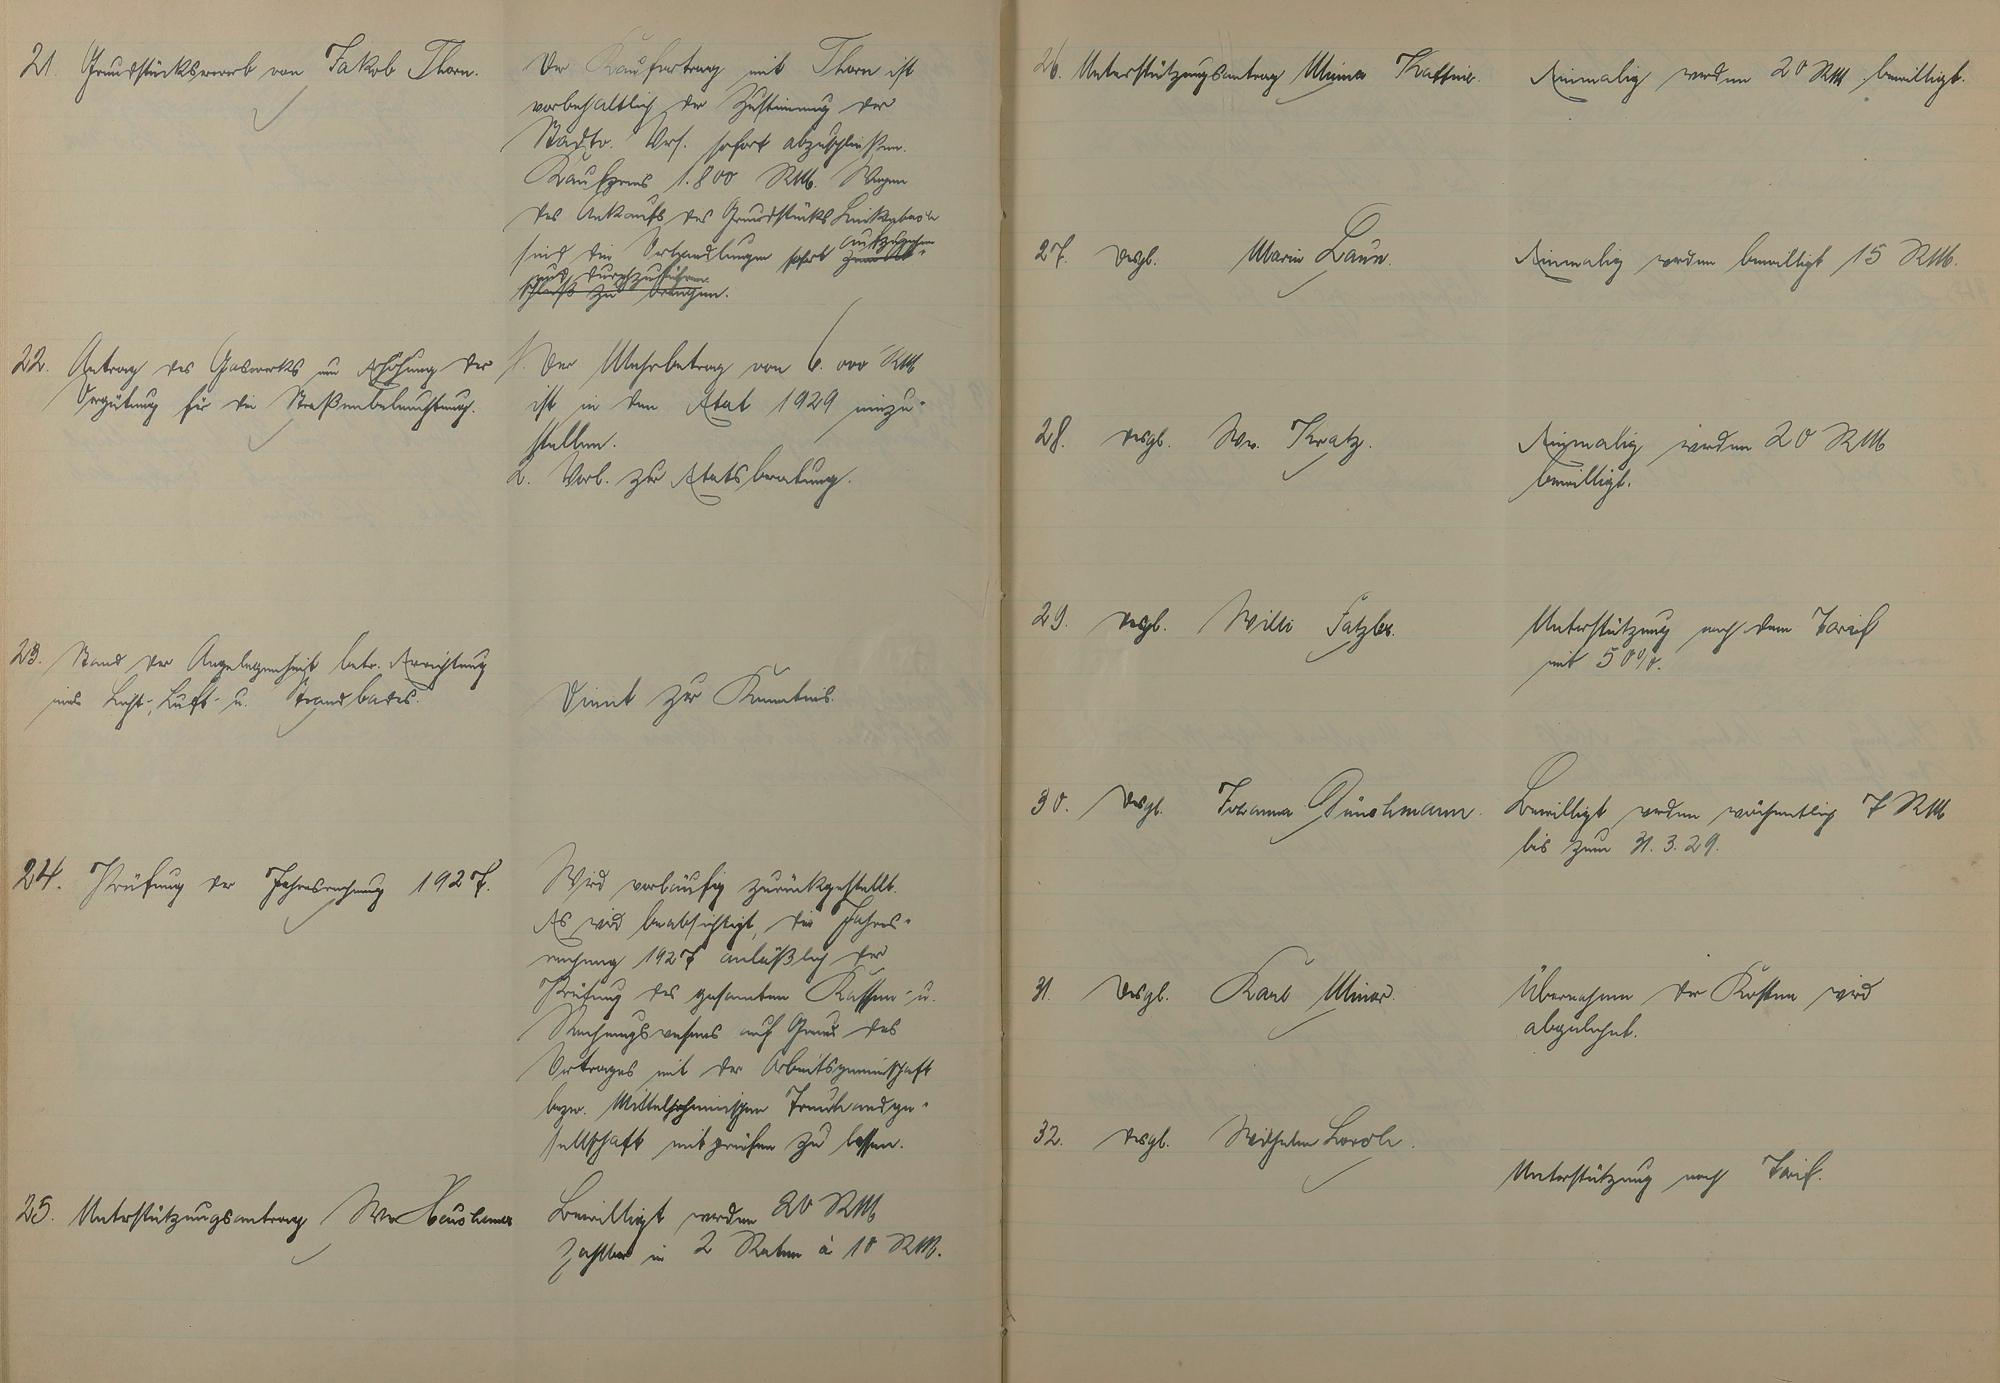 21. Grundstückserwerb von Jakob Thorn.
Der Kaufvertrag mit Thorn ist
vorbehaltlich der Zustimmung der
Stadtv. Vers. sofort abzuschließen.
Kaufpreis 1.800 RM. Wegen
des Ankaufs des Grundstücks
sind die Verhandlungen sofort aufzunehmen zum Ab-
und durchzuführen.
schluß zu bringen.
22. Antrag des Gaswerks um Erhöhung der
Vergütung für die Straßenbeleuchtung.
1. Der Mehrbetrag von 6.000 RM
ist in den Etat 1929 einzu-
stellen.
2. Vorl. zur Etatsberatung.
23. Stand der Angelegenheit betr. Errichtung
eines Licht-, Luft- u. Strandbades.
Dient zur Kenntnis.
24. Prüfung der Jahresrechnung 1927.
Wird vorläufig zurückgestellt.
Es wird beabsichtigt, die Jahres-
rechnung 1927 anläßlich der
Prüfung des gesamten Kassen- u.
Rechnungswesens auf Grund des
Vertrages mit der Arbeitsgemeinschaft
bezw. Mittelrheinischen Treuhandge-
sellschaft mitprüfen zu lassen.
25. Unterstützungsantrag Ww.
Bewilligt werden 20 RM
zahlbar in 2 Raten à 10 RM.
26. Unterstützungsantrag Minna
Einmalig werden 20 RM bewilligt.
27. desgl. Marie Laun.
Einmalig werden bewilligt 15 RM.
28. desgl. Ww. Kratz.
Einmalig werden 20 RM
bewilligt.
29. desgl. Willi Fatzler.
Unterstützung nach dem Tarif
mit 50%.
30. desgl. Johanna
Bewilligt werden wöchentlich 7 RM
bis zum 31.3.29.
31. desgl. Karl Minor.
Übernahme der Kosten wird
abgelehnt.
32. desgl. Wilhelm
Unterstützung nach Tarif.